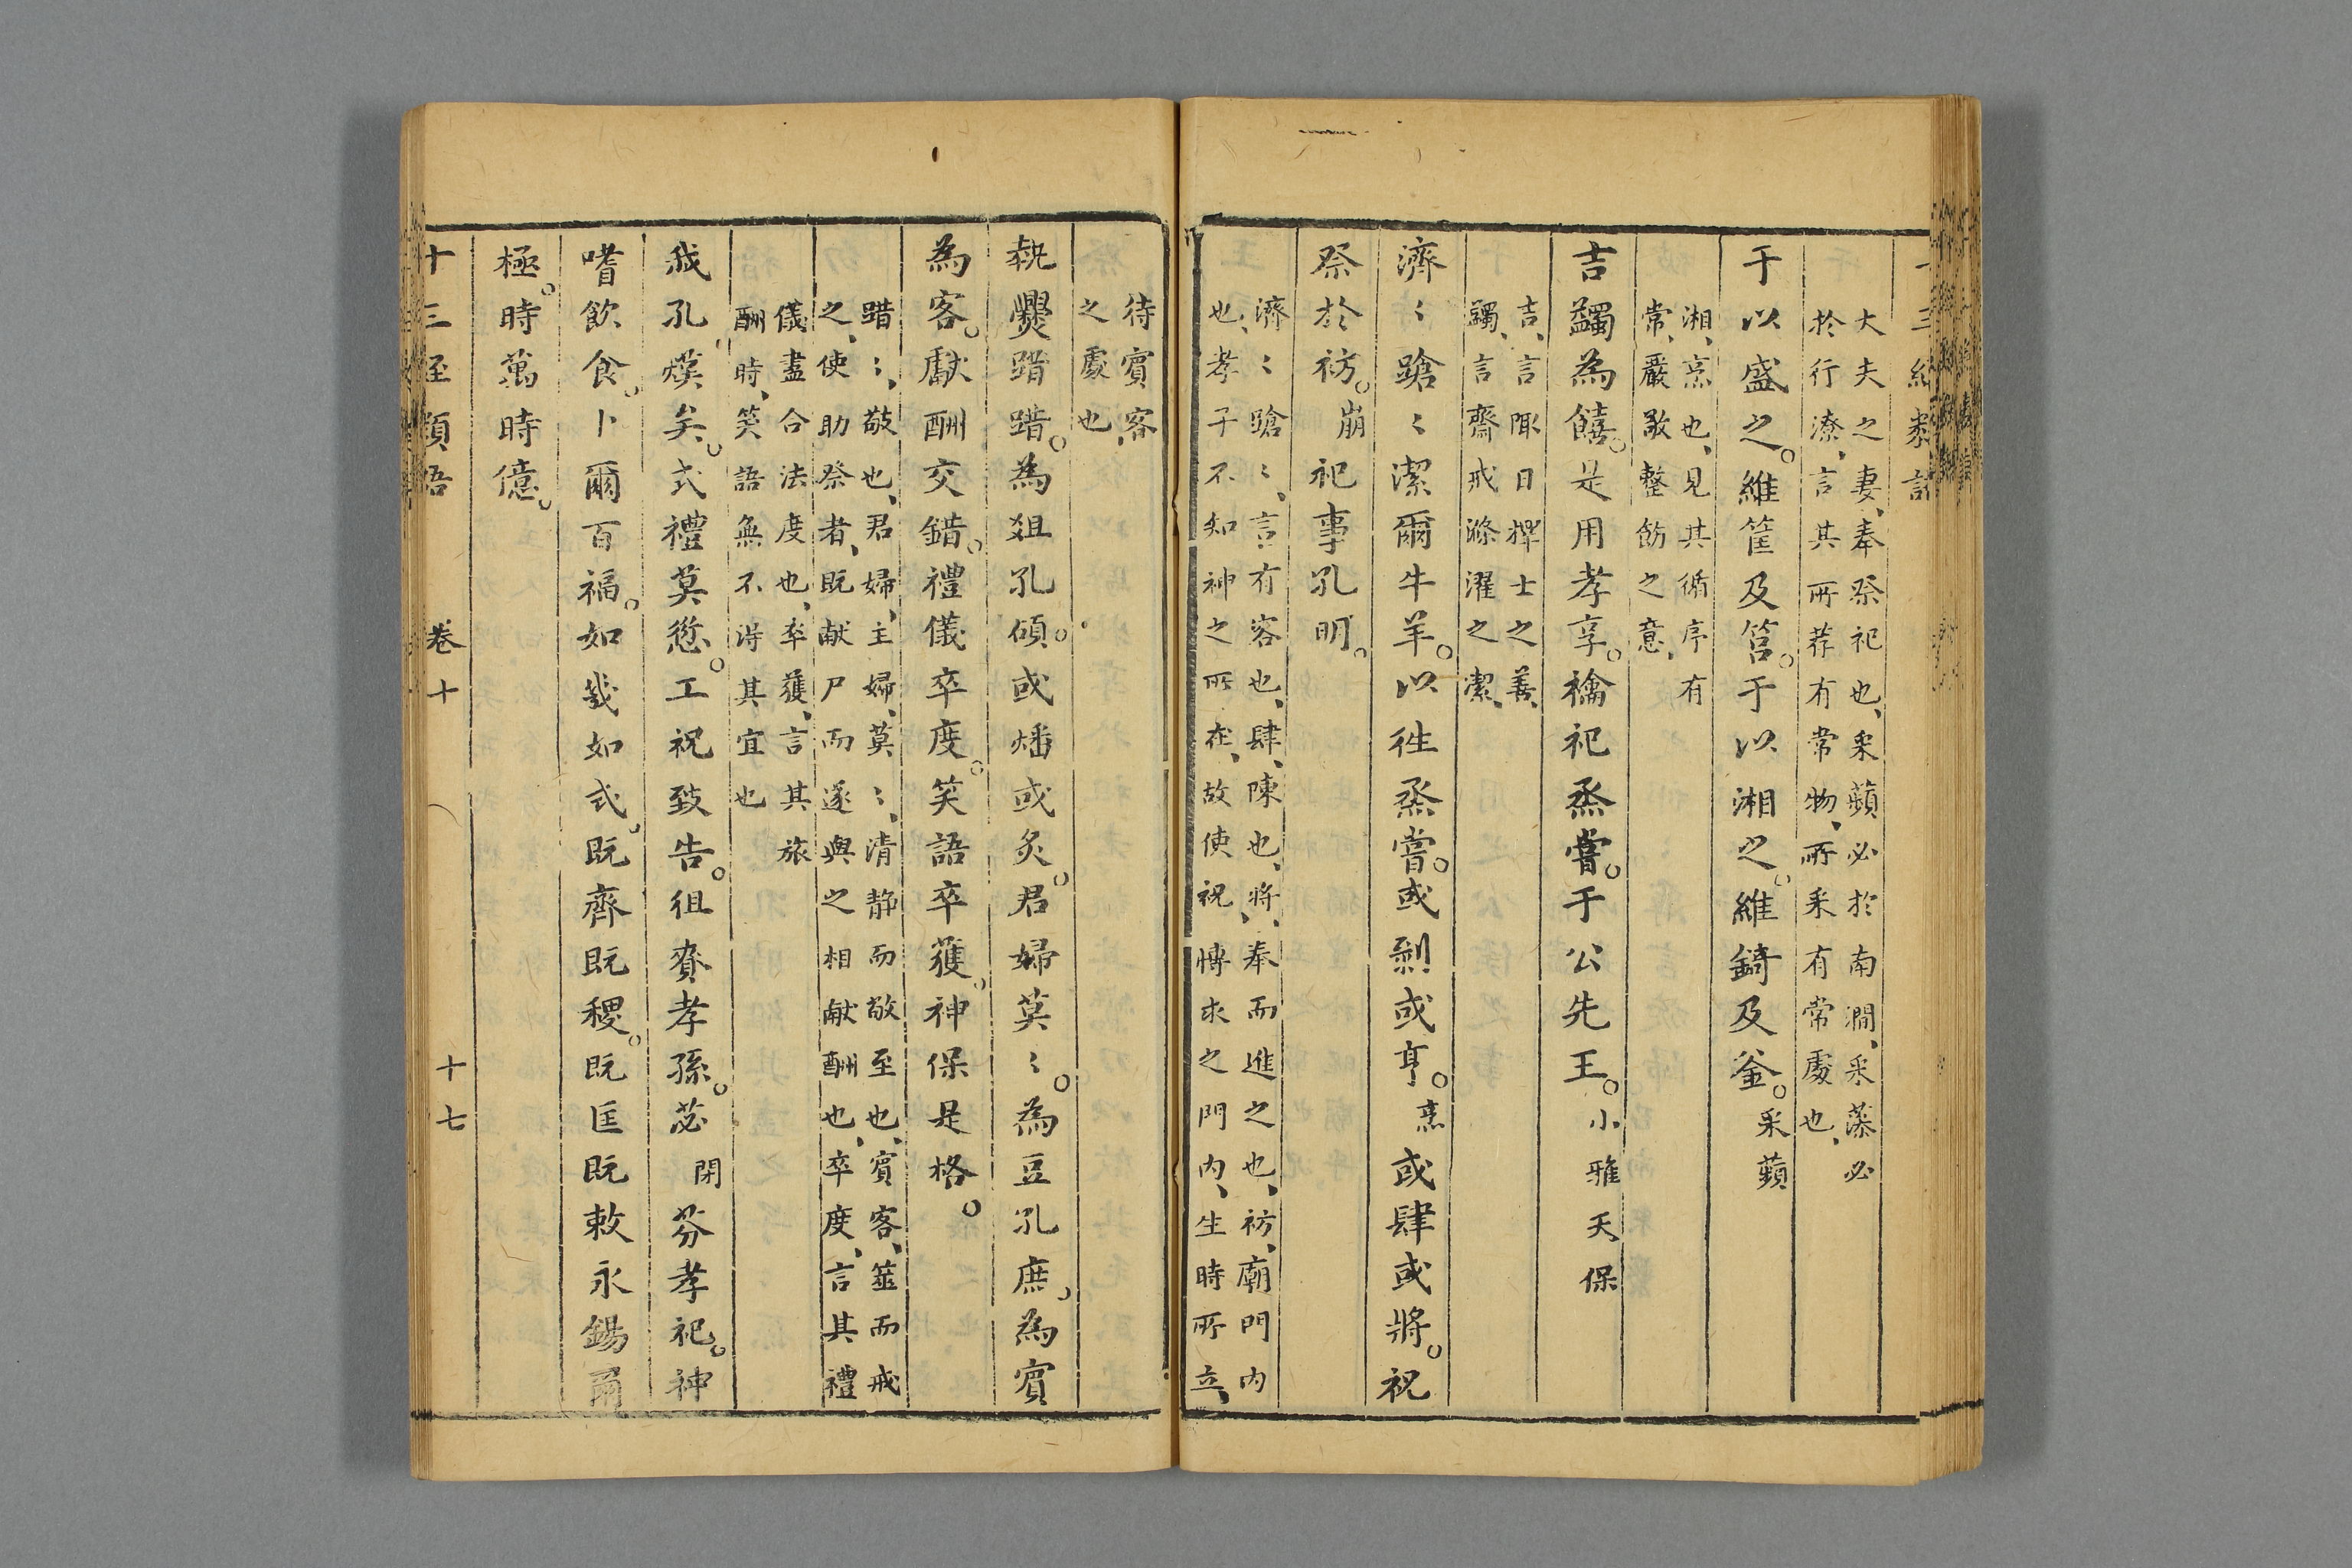 大夫之妻、奉祭祀也、采蘋必於南澗、采藻必
於行潦、言其所荐有常物、所采有常處也、
于以盛之。維筐及筥。于以湘之。維錡及釜。采蘋
湘、烹也、見其循序有
常、嚴敬整飭之意、
吉蠲為饎。是用孝享。禴祀烝嘗。于公先王。小雅天保
吉、言陬日擇士之善、
蠲、言齋戒滌濯之潔、
濟〻蹌〻潔爾牛羊。以徃烝嘗。或剝或亨。烹或肆或將。祝
祭於祊。崩祀事孔明。
濟〻蹌〻、言有容也、肆、陳也、將、奉而進之也、祊、廟門內
也、孝子不知神之所在、故使祝、愽求之門內、生時所立、
待賓客
之處也、
執爨踖踖。為俎孔碩。或燔或炙。君婦莫〻。為豆孔庶。為賓
為客。獻酬交錯。禮儀卒度。笑語卒獲。神保是格。
踖〻、敬也、君婦、主婦、莫〻、清静而敬至也、賓客、筮而戒
之、使助祭者、既献尸而遂與之相献酬也、卒度、言其禮
儀盡合法度也、卒獲、言其旅
酬時、笑語無不淂其宜也
我孔熯矣。式禮莫愆。工祝致告。徂賚孝孫。苾閉芬孝祀。神
嗜飲食。卜爾百福。如幾如式。既齊既稷。既匡既敕永錫爾
極。時萬時億。
十三經類語 卷十 十七